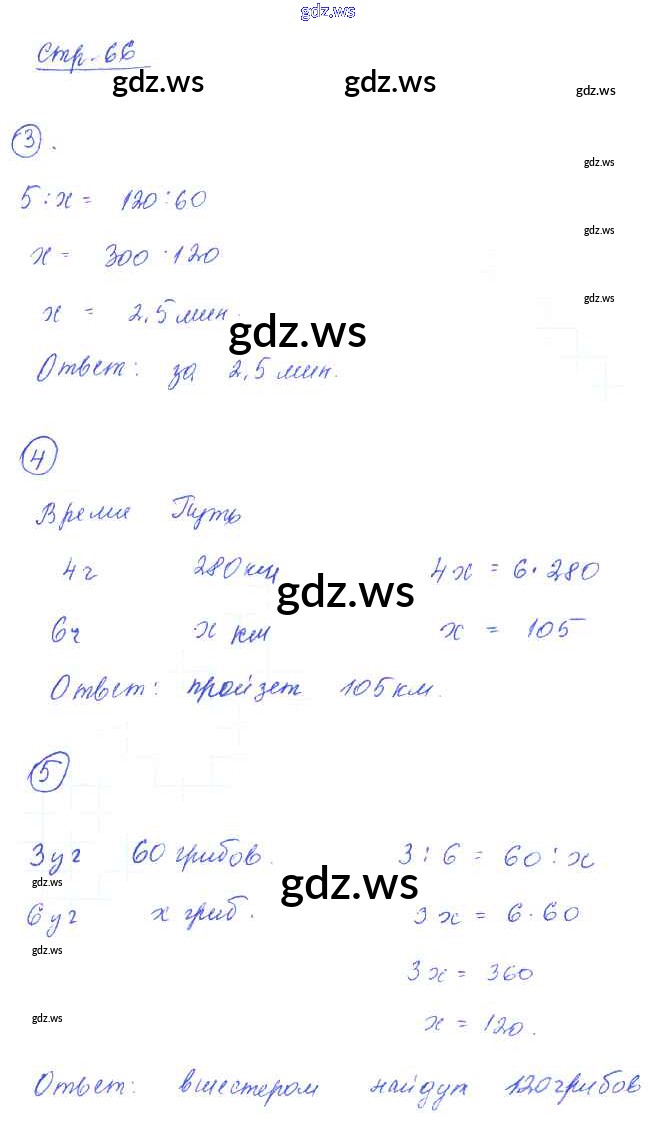 gdz.ws
Стр. 66
gdz.ws gdz.ws gdz.ws
3.
gdz.ws
5 : x = 120 : 60
gdz.ws
x = 300 · 120
gdz.ws
x = 2,5 мин.
gdz.ws
Ответ: за 2,5 мин.
4
Время Путь
4 ч 280 км 4x = 6 · 280
gdz.ws
6 ч x км x = 105
Ответ: пройзет 105 км.
5
3 уч 60 грибов. 3 : 6 = 60 : x
gdz.ws gdz.ws
6 уч x гриб. 3x = 6 · 60
gdz.ws
3x = 360
gdz.ws
x = 120.
Ответ: вшестером найдут 120 грибов